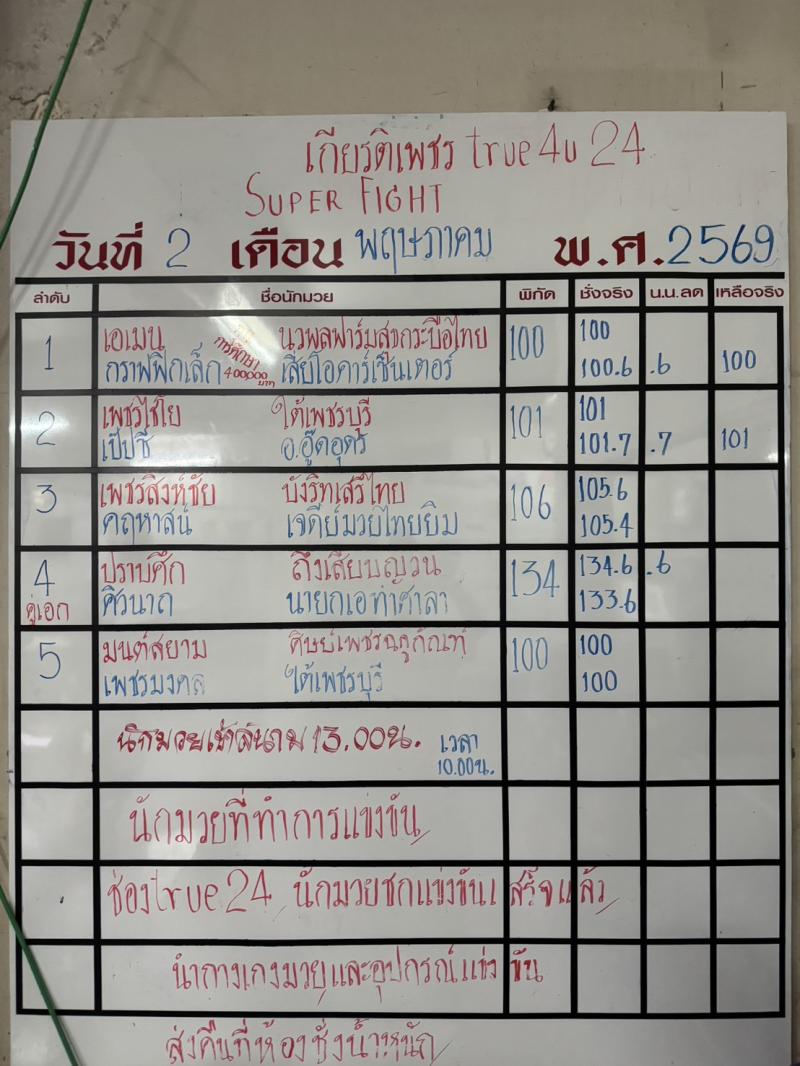 เกียรติเพชร true4u 24
SUPER FIGHT
วันที่ 2 เดือน พฤษภาคม พ.ศ. 2569
ลำดับ ชื่อนักมวย พิกัด ชั่งจริง น.น.ลด เหลือจริง
1 เอเมน นวพลฟาร์มสุขกระบือไทย 100 100
ทุนการศึกษา 400,000 บาท
กราฟฟิกเล็ก เสี่ยโอคาร์เซ็นเตอร์ 100.6 .6 100
2 เพชรไชโย ใต้เพชรบุรี 101 101
เป๊ปซี่ อ.อู๊ดอุดร 101.7 .7 101
3 เพชรสิงห์ชัย บังริทเสรีไทย 106 105.6
คฤหาสน์ เจดีย์มวยไทยยิม 105.4
4 ปราบศึก ถึงเสียบญวน 134 134.6 .6
คู่เอก ศิวนาถ นายกเอท่าศาลา 133.6
5 มนต์สยาม ศิษย์เพชรฉฎภัณฑ์ 100 100
เพชรมงคล ใต้เพชรบุรี 100
นักมวยเข้าสนาม 13.00น. เวลา
10.00น.
นักมวยที่ทำการแข่งขัน
ช่องtrue24 นักมวยชกแข่งขันเสร็จแล้ว
นำกางเกงมวยและอุปกรณ์แข่งขัน
ส่งคืนที่ห้องชั่งน้ำหนัก